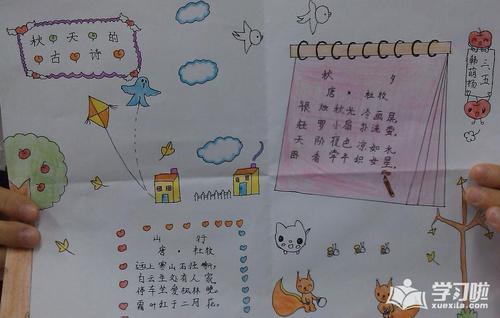 秋天的
古诗
秋 夕
唐·杜牧
银烛秋光冷画屏
轻罗小扇扑流萤。
天阶夜色凉如水
卧看牵牛织女星。
三、五
韩萌杨
山 行
唐·杜牧
远上寒山石径斜,
白云生处有人家
停车坐爱枫林晚
霜叶红于二月花。
学习啦
xuexila.com